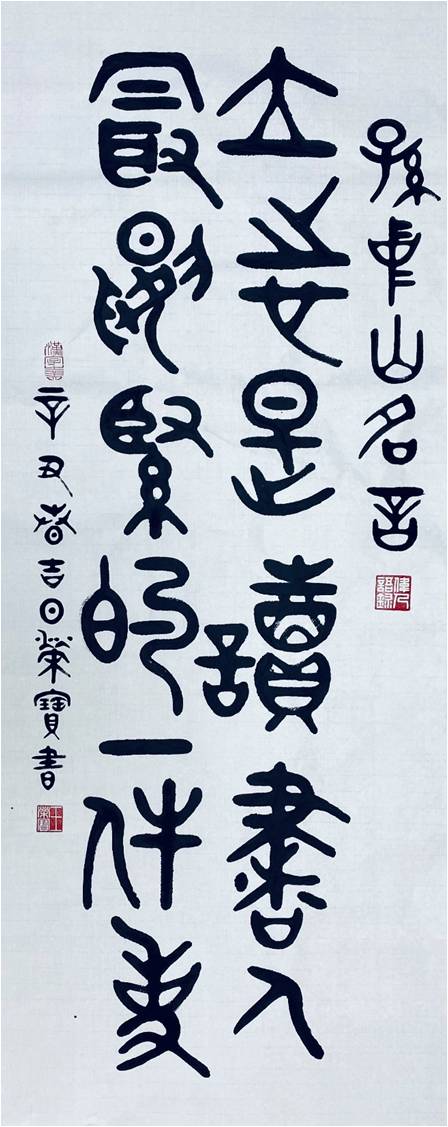 孫中山名言
偉人語錄
立志是讀書人
最要緊的一件事
辛丑春吉日榮寶書